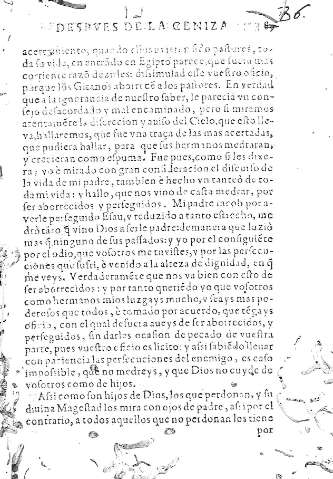 DESPVES DE LA CENIZA 36.
da su vida, en entrãdo en Egipto parece, que fuera mas
corriente razõ dezirles: dissimulad esse vuestro oficio,
porque los Gitanos aborrecẽ a los pastores. En verdad
que a la ignorancia de nuestro saber, le parecia vn con-
sejo desacordado y mal encaminado, pero si miramos
atentamẽte la discrecion y auiso del Cielo, que esto lle-
va, hallaremos, que fue vna traça de las mas acertadas,
que pudiera hallar, para que sus hermanos medraran,
y crecieran como espuma. Fue pues, como si les dixe-
ra; yo è mirado con gran consideracion el discurso de
la vida de mi padre, tambien è hecho vn tanteo de to-
da mi vida: y hallo, que nos vino de casta medrar, por
ser aborrecidos y perseguidos. Mi padre Iacob por a-
verle perseguido Esau, y reduzido a tanto estrecho, me
drò tãto q̃ vino Dios a serle padre: de manera que luziò
mas q̃ ninguno de sus passados: y yo por el consiguiẽte
por el odio, que vosotros me tuvistes, y por las persecu-
ciones que sufri, è venido a la alteza de dignidad, en q̃
me veys. Verdaderamẽte que nos va bien con esto de
ser aborrecidos: y por tanto queriẽdo yo que vosotros
como hermanos mios luzgays mucho, y seays mas po-
derosos que todos, è tomado por acuerdo, que tẽgays
oficio, con el qual de fuerça aueys de ser aborrecidos, y
perseguidos, sin darles ocasion de pecado de vuestra
parte, pues vuestro oficio es licito: y assi sabiẽdo llenar
con paciencia las persecuciones del enemigo, es caso
impossible, que no medreys, y que Dios no cuyde de
vosotros como de hijos.
Assi como son hijos de Dios, los que perdonan, y su
diuina Magestad los mira con ojos de padre, assi por el
contrario, a todos aquellos que no perdonan los tiene
por